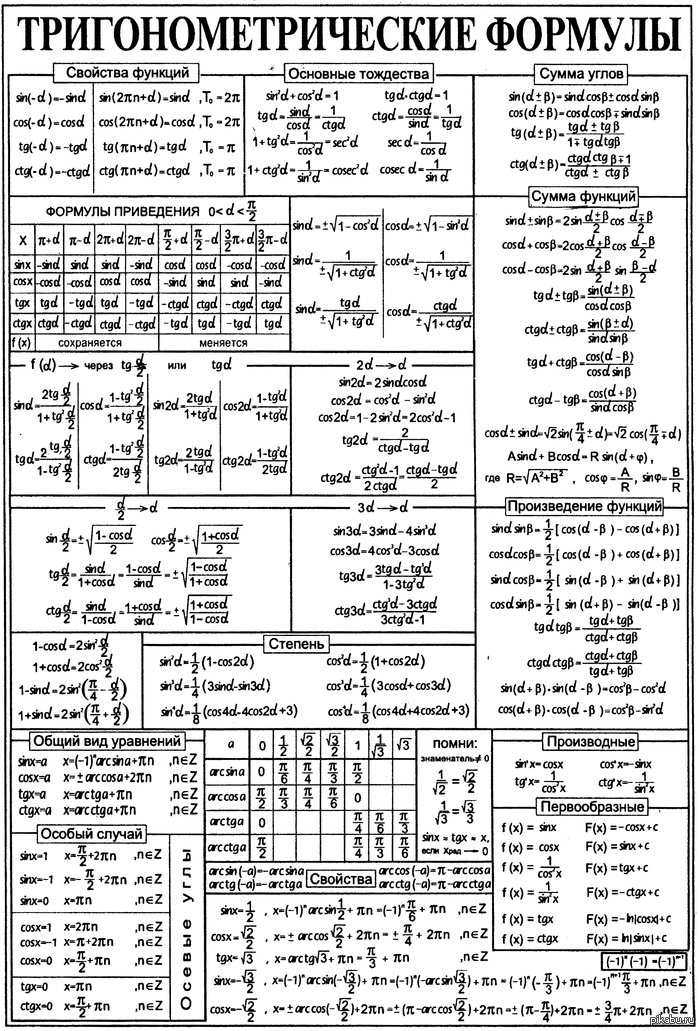 ТРИГОНОМЕТРИЧЕСКИЕ ФОРМУЛЫ
Свойства функций
sin(-α)=-sinα sin(2πn+α)=sinα ,T₀ = 2π
cos(-α)=cosα cos(2πn+α)=cosα ,T₀ = 2π
tg(-α)=-tgα tg(πn+α)=tgα ,T₀ = π
ctg(-α)=-ctgα ctg(πn+α)=ctgα ,T₀ = π
Основные тождества
sin²α+cos²α=1 tgα·ctgα=1
tgα=sinα/cosα=1/ctgα ctgα=cosα/sinα=1/tgα
1+tg²α=1/cos²α=sec²α secα=1/cosα
1+ctg²α=1/sin²α=cosec²α cosecα=1/sinα
Сумма углов
sin(α±β)=sinαcosβ±cosαsinβ
cos(α±β)=cosαcosβ∓sinαsinβ
tg(α±β)=(tgα±tgβ)/(1∓tgαtgβ)
ctg(α±β)=(ctgαctgβ∓1)/(ctgα±ctgβ)
ФОРМУЛЫ ПРИВЕДЕНИЯ 0<α<π/2
X π+α π-α 2π+α 2π-α π/2+α π/2-α 3/2π+α 3/2π-α
sinx -sinα sinα sinα -sinα cosα cosα -cosα -cosα
cosx -cosα -cosα cosα cosα -sinα sinα sinα -sinα
tgx tgα -tgα tgα -tgα -ctgα ctgα -ctgα ctgα
ctgx ctgα -ctgα ctgα -ctgα -tgα tgα -tgα tgα
f(x) сохраняется меняется
sinα=±√(1-cos²α) cosα=±√(1-sin²α)
sinα=1/±√(1+ctg²α) cosα=1/±√(1+tg²α)
sinα=tgα/±√(1+tg²α) cosα=ctgα/±√(1+ctg²α)
Сумма функций
sinα±sinβ=2sin (α±β)/2 cos (α∓β)/2
cosα+cosβ=2cos (α+β)/2 cos (α-β)/2
cosα-cosβ=2sin (α+β)/2 sin (β-α)/2
tgα±tgβ=sin(α±β)/cosαcosβ
ctgα±ctgβ=sin(β±α)/sinαsinβ
tgα+ctgβ=cos(α-β)/cosαsinβ
ctgα-tgβ=cos(α+β)/sinαcosβ
cosα±sinα=√2sin(π/4±α)=√2 cos(π/4∓α)
Asinα+Bcosα=R sin(α+φ),
где R=√(A²+B²) , cosφ=A/R, sinφ=B/R
f(α)→через tg α/2 или tgα
sinα=2tg α/2 / (1+tg² α/2) cosα=(1-tg² α/2)/(1+tg² α/2) sin2α=2tgα/(1+tg²α) cos2α=(1-tg²α)/(1+tg²α)
tgα=2tg α/2 / (1-tg² α/2) ctgα=(1-tg² α/2)/(2tg α/2) tg2α=2tgα/(1-tg²α) ctg2α=(1-tg²α)/2tgα
2α→α
sin2α=2sinαcosα
cos2α=cos²α-sin²α
cos2α=1-2sin²α=2cos²α-1
tg2α=2/(ctgα-tgα)
ctg2α=(ctg²α-1)/2ctgα=(ctgα-tgα)/2
α/2→α
sin α/2=±√((1-cosα)/2) cos α/2=±√((1+cosα)/2)
tg α/2=sinα/(1+cosα)=(1-cosα)/sinα=±√((1-cosα)/(1+cosα))
ctg α/2=sinα/(1-cosα)=(1+cosα)/sinα=±√((1+cosα)/(1-cosα))
3α→α
sin3α=3sinα-4sin³α
cos3α=4cos³α-3cosα
tg3α=(3tgα-tg³α)/(1-3tg²α)
ctg3α=(ctg³α-3ctgα)/(3ctg²α-1)
Произведение функций
sinαsinβ=1/2[cos(α-β)-cos(α+β)]
cosαcosβ=1/2[cos(α-β)+cos(α+β)]
sinαcosβ=1/2[sin(α-β)+sin(α+β)]
cosαsinβ=1/2[sin(α+β)-sin(α-β)]
tgαtgβ=(tgα+tgβ)/(ctgα+ctgβ)
ctgαctgβ=(ctgα+ctgβ)/(tgα+tgβ)
sin(α+β)·sin(α-β)=cos²β-cos²α
cos(α+β)·cos(α-β)=cos²β-sin²α
1-cosα=2sin² α/2
1+cosα=2cos² α/2
1-sinα=2sin²(π/4-α/2)
1+sinα=2sin²(π/4+α/2)
Степень
sin²α=1/2(1-cos2α) cos²α=1/2(1+cos2α)
sin³α=1/4(3sinα-sin3α) cos³α=1/4(3cosα+cos3α)
sin⁴α=1/8(cos4α-4cos2α+3) cos⁴α=1/8(cos4α+4cos2α+3)
Общий вид уравнений
sinx=a x=(-1)ⁿarcsina+πn ,n∈Z
cosx=a x=±arccosa+2πn ,n∈Z
tgx=a x=arctga+πn ,n∈Z
ctgx=a x=arcctga+πn ,n∈Z
Особый случай
sinx=1 x=π/2+2πn ,n∈Z
sinx=-1 x=-π/2+2πn ,n∈Z
sinx=0 x=πn ,n∈Z
cosx=1 x=2πn ,n∈Z
cosx=-1 x=π+2πn ,n∈Z
cosx=0 x=π/2+πn ,n∈Z
tgx=0 x=πn ,n∈Z
ctgx=0 x=π/2+πn ,n∈Z
Осевые углы
a 0 1/2 √2/2 √3/2 1 1/√3 √3
arcsina 0 π/6 π/4 π/3 π/2
arccosa π/2 π/3 π/4 π/6 0
arctga 0 π/4 π/6 π/3
arcctga π/2 π/4 π/3 π/6
ПОМНИ:
знаменатель≠0
1/√2=√2/2
1/√3=√3/3
sinx≈tgx≈x,
если Xрад→0
Производные
sin'x=cosx cos'x=-sinx
tg'x=1/cos²x ctg'x=-1/sin²x
Первообразные
f(x)=sinx F(x)=-cosx+c
f(x)=cosx F(x)=sinx+c
f(x)=1/cos²x F(x)=tgx+c
f(x)=1/sin²x F(x)=-ctgx+c
f(x)=tgx F(x)=-ln|cosx|+c
f(x)=ctgx F(x)=ln|sinx|+c
Свойства
arcsin(-a)=-arcsina arccos(-a)=π-arccosa
arctg(-a)=-arctga arcctg(-a)=π-arcctga
sinx=1/2 , x=(-1)ⁿarcsin1/2+πn=(-1)ⁿπ/6+πn ,n∈Z
cosx=√2/2 , x=±arccos√2/2+2πn=±π/4+2πn ,n∈Z
tgx=√3 , x=arctg√3+πn=π/3+πn ,n∈Z
(-1)ⁿ(-1)=(-1)ⁿ⁺¹
sinx=-√3/2 , x=(-1)ⁿarcsin(-√3/2)+πn=(-1)ⁿ(-arcsin√3/2)+πn=(-1)ⁿ(-π/3)+πn=(-1)ⁿ⁺¹π/3+πn ,n∈Z
cosx=-√2/2 , x=±arccos(-√2/2)+2πn=±(π-arccos√2/2)+2πn=±(π-π/4)+2πn=±3/4π+2πn ,n∈Z
pikabu.ru